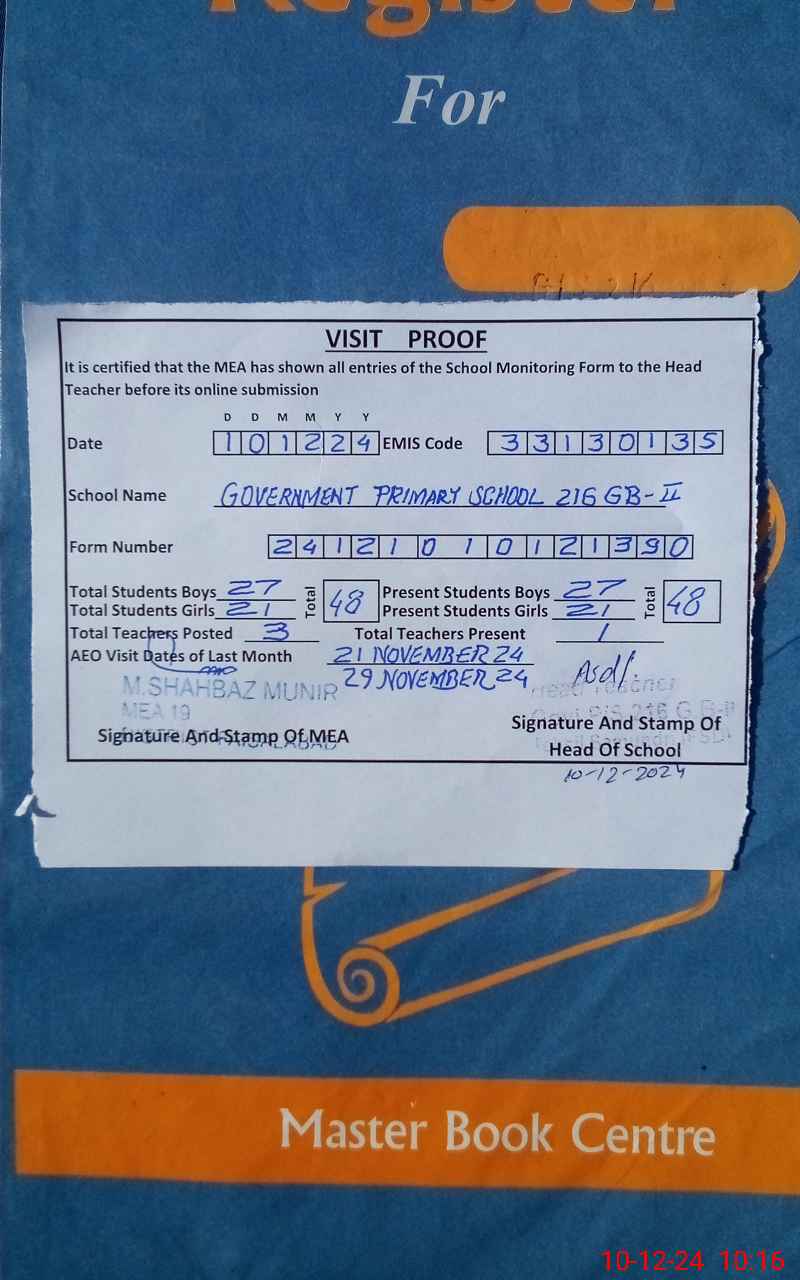 Register
For
VISIT PROOF
It is certified that the MEA has shown all entries of the School Monitoring Form to the Head
Teacher before its online submission
D D M M Y Y
Date 101224 EMIS Code 33130135
School Name GOVERNMENT PRIMARY SCHOOL 216 GB-II
Form Number 24121 0 1 0121390
Total Students Boys 27 Total 48 Present Students Boys 27 Total 48
Total Students Girls 21 Present Students Girls 21
Total Teachers Posted 3 Total Teachers Present 1
AEO Visit Dates of Last Month 21 NOVEMBER 24
29 NOVEMBER 24
M.SHAHBAZ MUNIR Head Teacher
MEA 19 216 G.B-II
Signature And Stamp Of MEA Signature And Stamp Of
Head Of School
10-12-2024
Master Book Centre
10-12-24 10:16